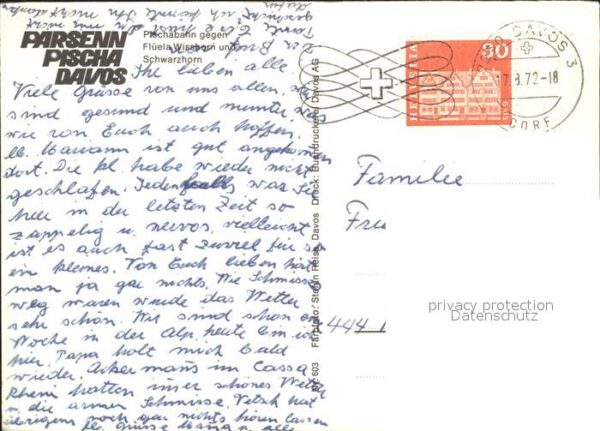 PARSENN
PISCHA
DAVOS
Pischabahn gegen
Flüela Wisshorn und
Schwarzhorn
Ihr lieben alle
Viele Grüsse von uns allen, wir
sind gesund und munter, was
wir von Euch auch hoffen.
lb. Mamann ist gut angekommen
dort. Die kl. habe wieder nicht
geschlafen. Jedenfalls war sie
hier in der letzten Zeit so
zappelig u. nervos, vielleicht
ist es auch fast zuviel für so
ein kleines. Von Euch lieben hört
man ja gar nichts. Wie Schmisses
weg waren wurde das Wetter
sehr schön. Wir sind schon eine
Woche in der Alp, heute bin ich
hier. Papa holt mich bald
wieder. Ackermans im Cassa
Rhein hatten imer schönes Wetter
u. die armen Schmisse. Tetsch hat
übrigens noch gar nichts hören lassen
lb. Grüsse Mang u. alle
HELVETIA
80
DAVOS 3
17.8.72-18
DORF
Familie
Fru
444
603 Farbfoto: Davos Druck: Buchdruckerei Davos AG
privacy protection
Datenschutz